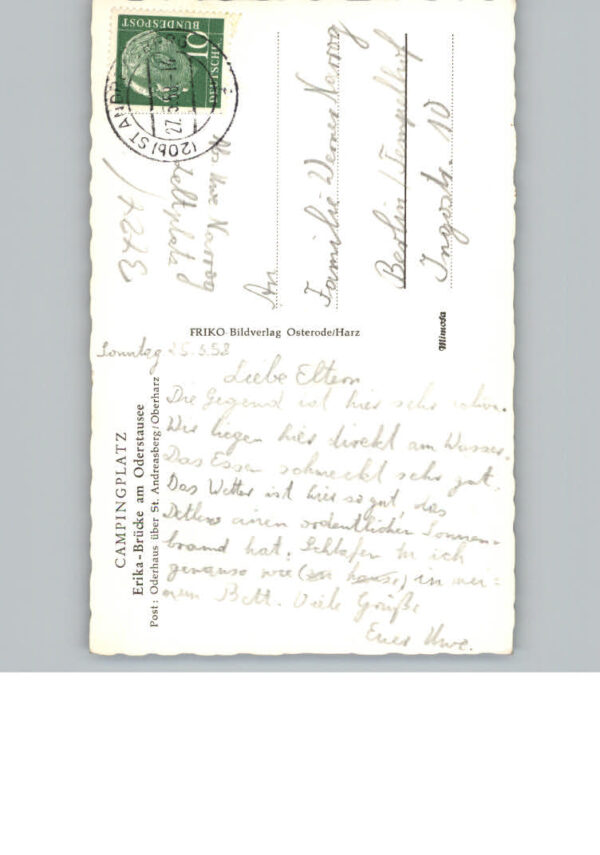 CAMPINGPLATZ
Erika-Brücke am Oderstausee
Post: Oderhaus über St. Andreasberg/Oberharz
Sonntag 25.5.58
Liebe Eltern
Die Gegend ist hier sehr schön.
Wir liegen hier direkt am Wasser.
Das Essen schmeckt sehr gut.
Das Wetter ist hier so gut, das
Detlev einen ordentlichen Sonnen-
brand hat. Schlafen tu ich
genauso wie (zu hause) in mei-
nem Bett. Viele Grüße
Euer Uwe.
FRIKO-Bildverlag Osterode/Harz
Mimosa
DEUTSCHE
BUNDESPOST
10
(20b) ST ANDR
27.5.58
Uwe
Zeltplatz
An
Familie Werner
Berlin/Tempelhof
10